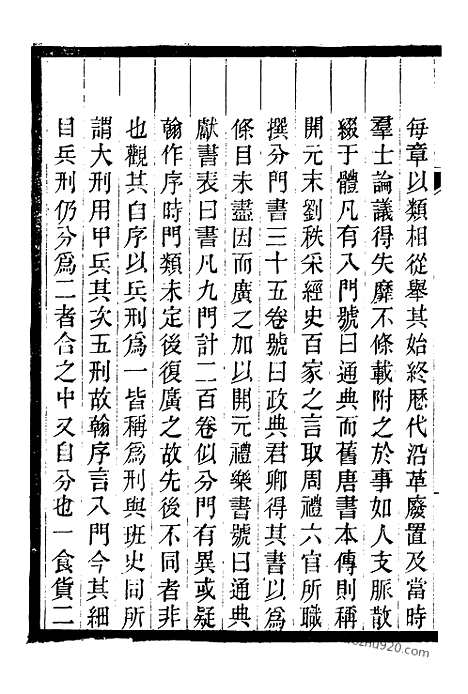 每章以類相從舉其始終歷代沿革廢置及當時
羣士論議得失靡不條載附之於事如人支脈散
綴于體凡有八門號曰通典而舊唐書本傳則稱
開元末劉秩采經史百家之言取周禮六官所職
撰分門書三十五卷號曰政典君卿得其書以爲
條目未盡因而廣之加以開元禮樂書號曰通典
獻書表曰書凡九門計二百卷似分門有異或疑
翰作序時門類未定後復廣之故先後不同者非
也觀其自序以兵刑爲一皆稱爲刑與班史同所
謂大刑用甲兵其次五刑故翰序言八門今其細
目兵刑仍分爲二者合之中又自分也一食貨二